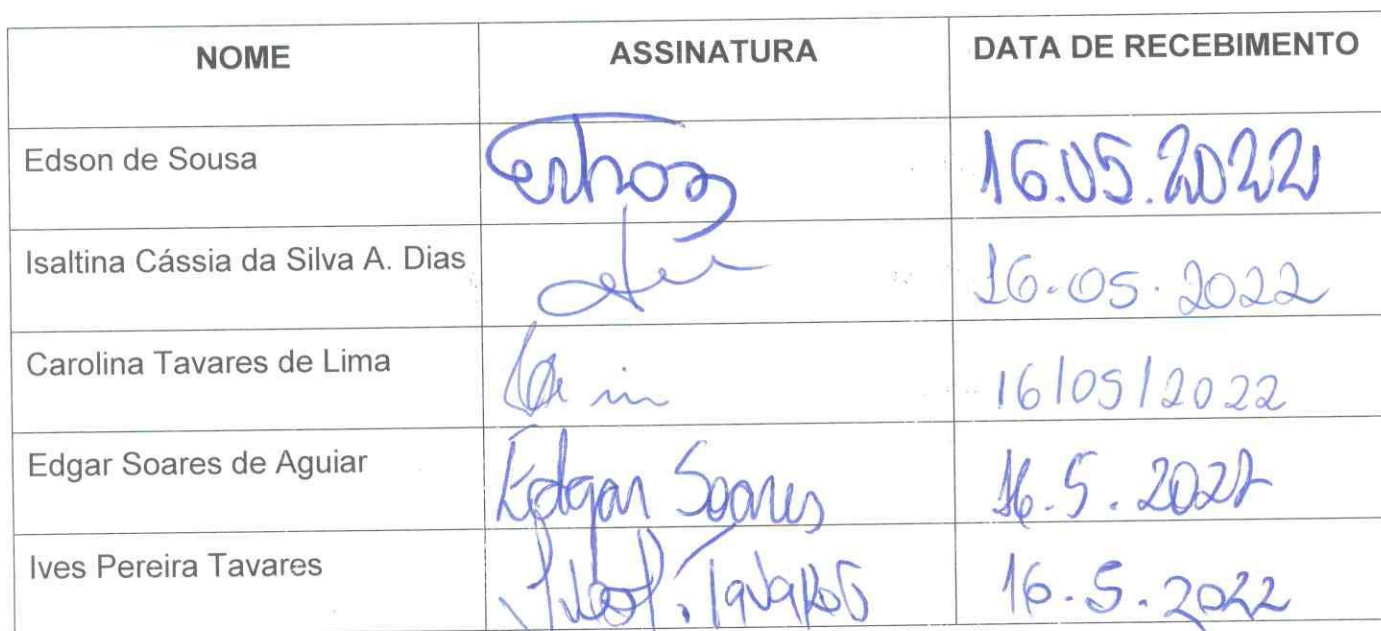 NOME ASSINATURA DATA DE RECEBIMENTO
Edson de Sousa 16.05.2022
Isaltina Cássia da Silva A. Dias 16.05.2022
Carolina Tavares de Lima 16/05/2022
Edgar Soares de Aguiar Edgar Soares 16.5.2022
Ives Pereira Tavares Ives P. Tavares 16.5.2022